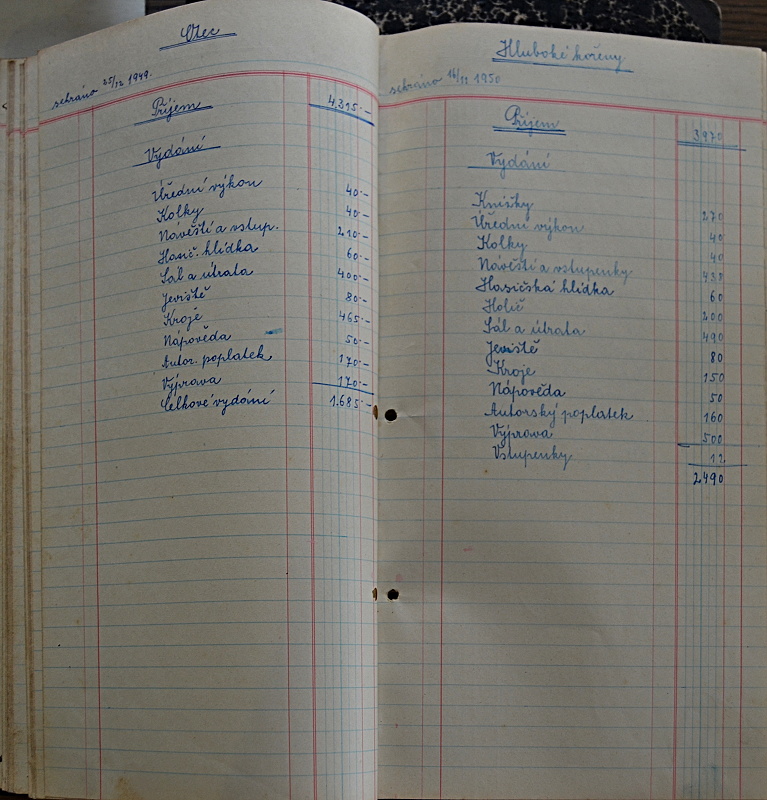 Otec
sehráno 25/12 1949.
Příjem 4.315·-
Vydání
Úřední výkon 40·-
Kolky 40·-
Návěští a vstup. 210·-
Hasič. hlídka 60·-
Sál a útrata 400·-
Jeviště 80·-
Kroje 465·-
Nápověda 50·-
Autor. poplatek 170·-
Výprava 170·-
Celkové vydání 1.685·-
Hluboké kořeny
sehráno 16/12 1950
Příjem 3970
Vydání
Knížky 270
Úřední výkon 40
Kolky 40
Návěští a vstupenky 438
Hasičská hlídka 60
Holič 200
Sál a útrata 490
Jeviště 80
Kroje 150
Nápověda 50
Autorský poplatek 160
Výprava 500
Vstupenky 12
2490